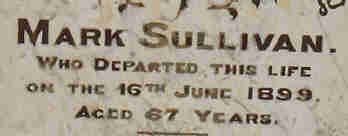 MARK SULLIVAN.
WHO DEPARTED THIS LIFE
ON THE 16TH JUNE 1899.
AGED 67 YEARS.